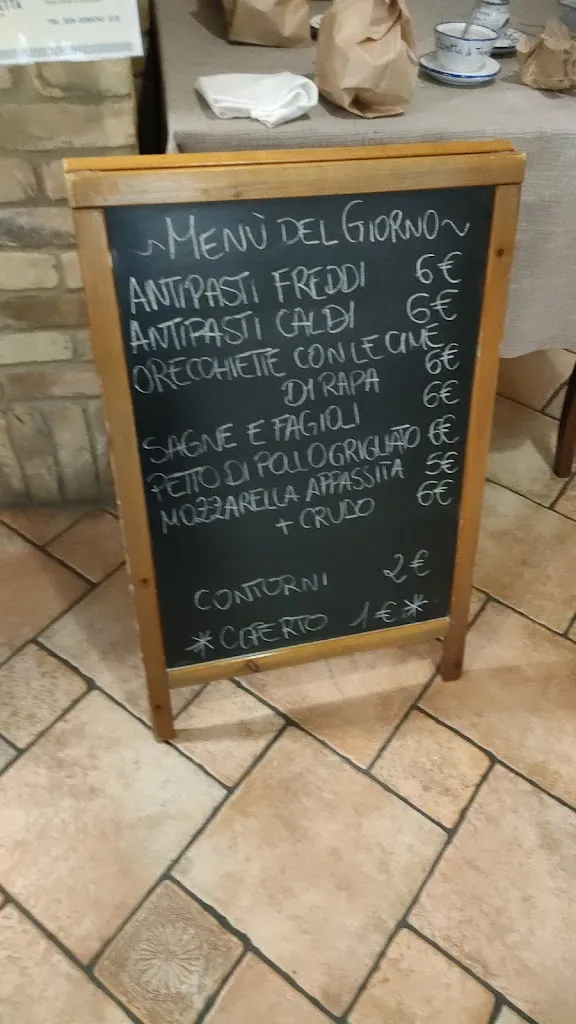 ~MENÙ DEL GIORNO~
ANTIPASTI FREDDI 6€
ANTIPASTI CALDI 6€
ORECCHIETTE CON LE CIME 6€
DI RAPA 6€
SAGNE E FAGIOLI 6€
PETTO DI POLLO GRIGLIATO 5€
MOZZARELLA APPASSITA 6€
+ CRUDO
CONTORNI 2€
*COPERTO 1€*